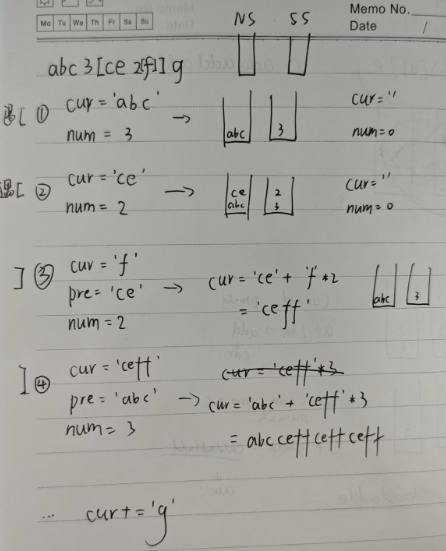 Memo No.
Mo Tu We Th Fr Sa Su
Date /
NS SS
abc 3[ce 2[f]] g
遇[ ① cur = 'abc' → abc 3 cur = ''
num = 3 num = 0
遇[ ② cur = 'ce' → ce abc 2 3 cur = ''
num = 2 num = 0
] ③ cur = 'f'
pre = 'ce' → cur = 'ce' + 'f' *2 abc 3
num = 2 = 'ceff'
] ④ cur = 'ceff' cur = 'ceff' *3
pre = 'abc' → cur = 'abc' + 'ceff' * 3
num = 3 = abcceffceffceff
... cur += 'g'